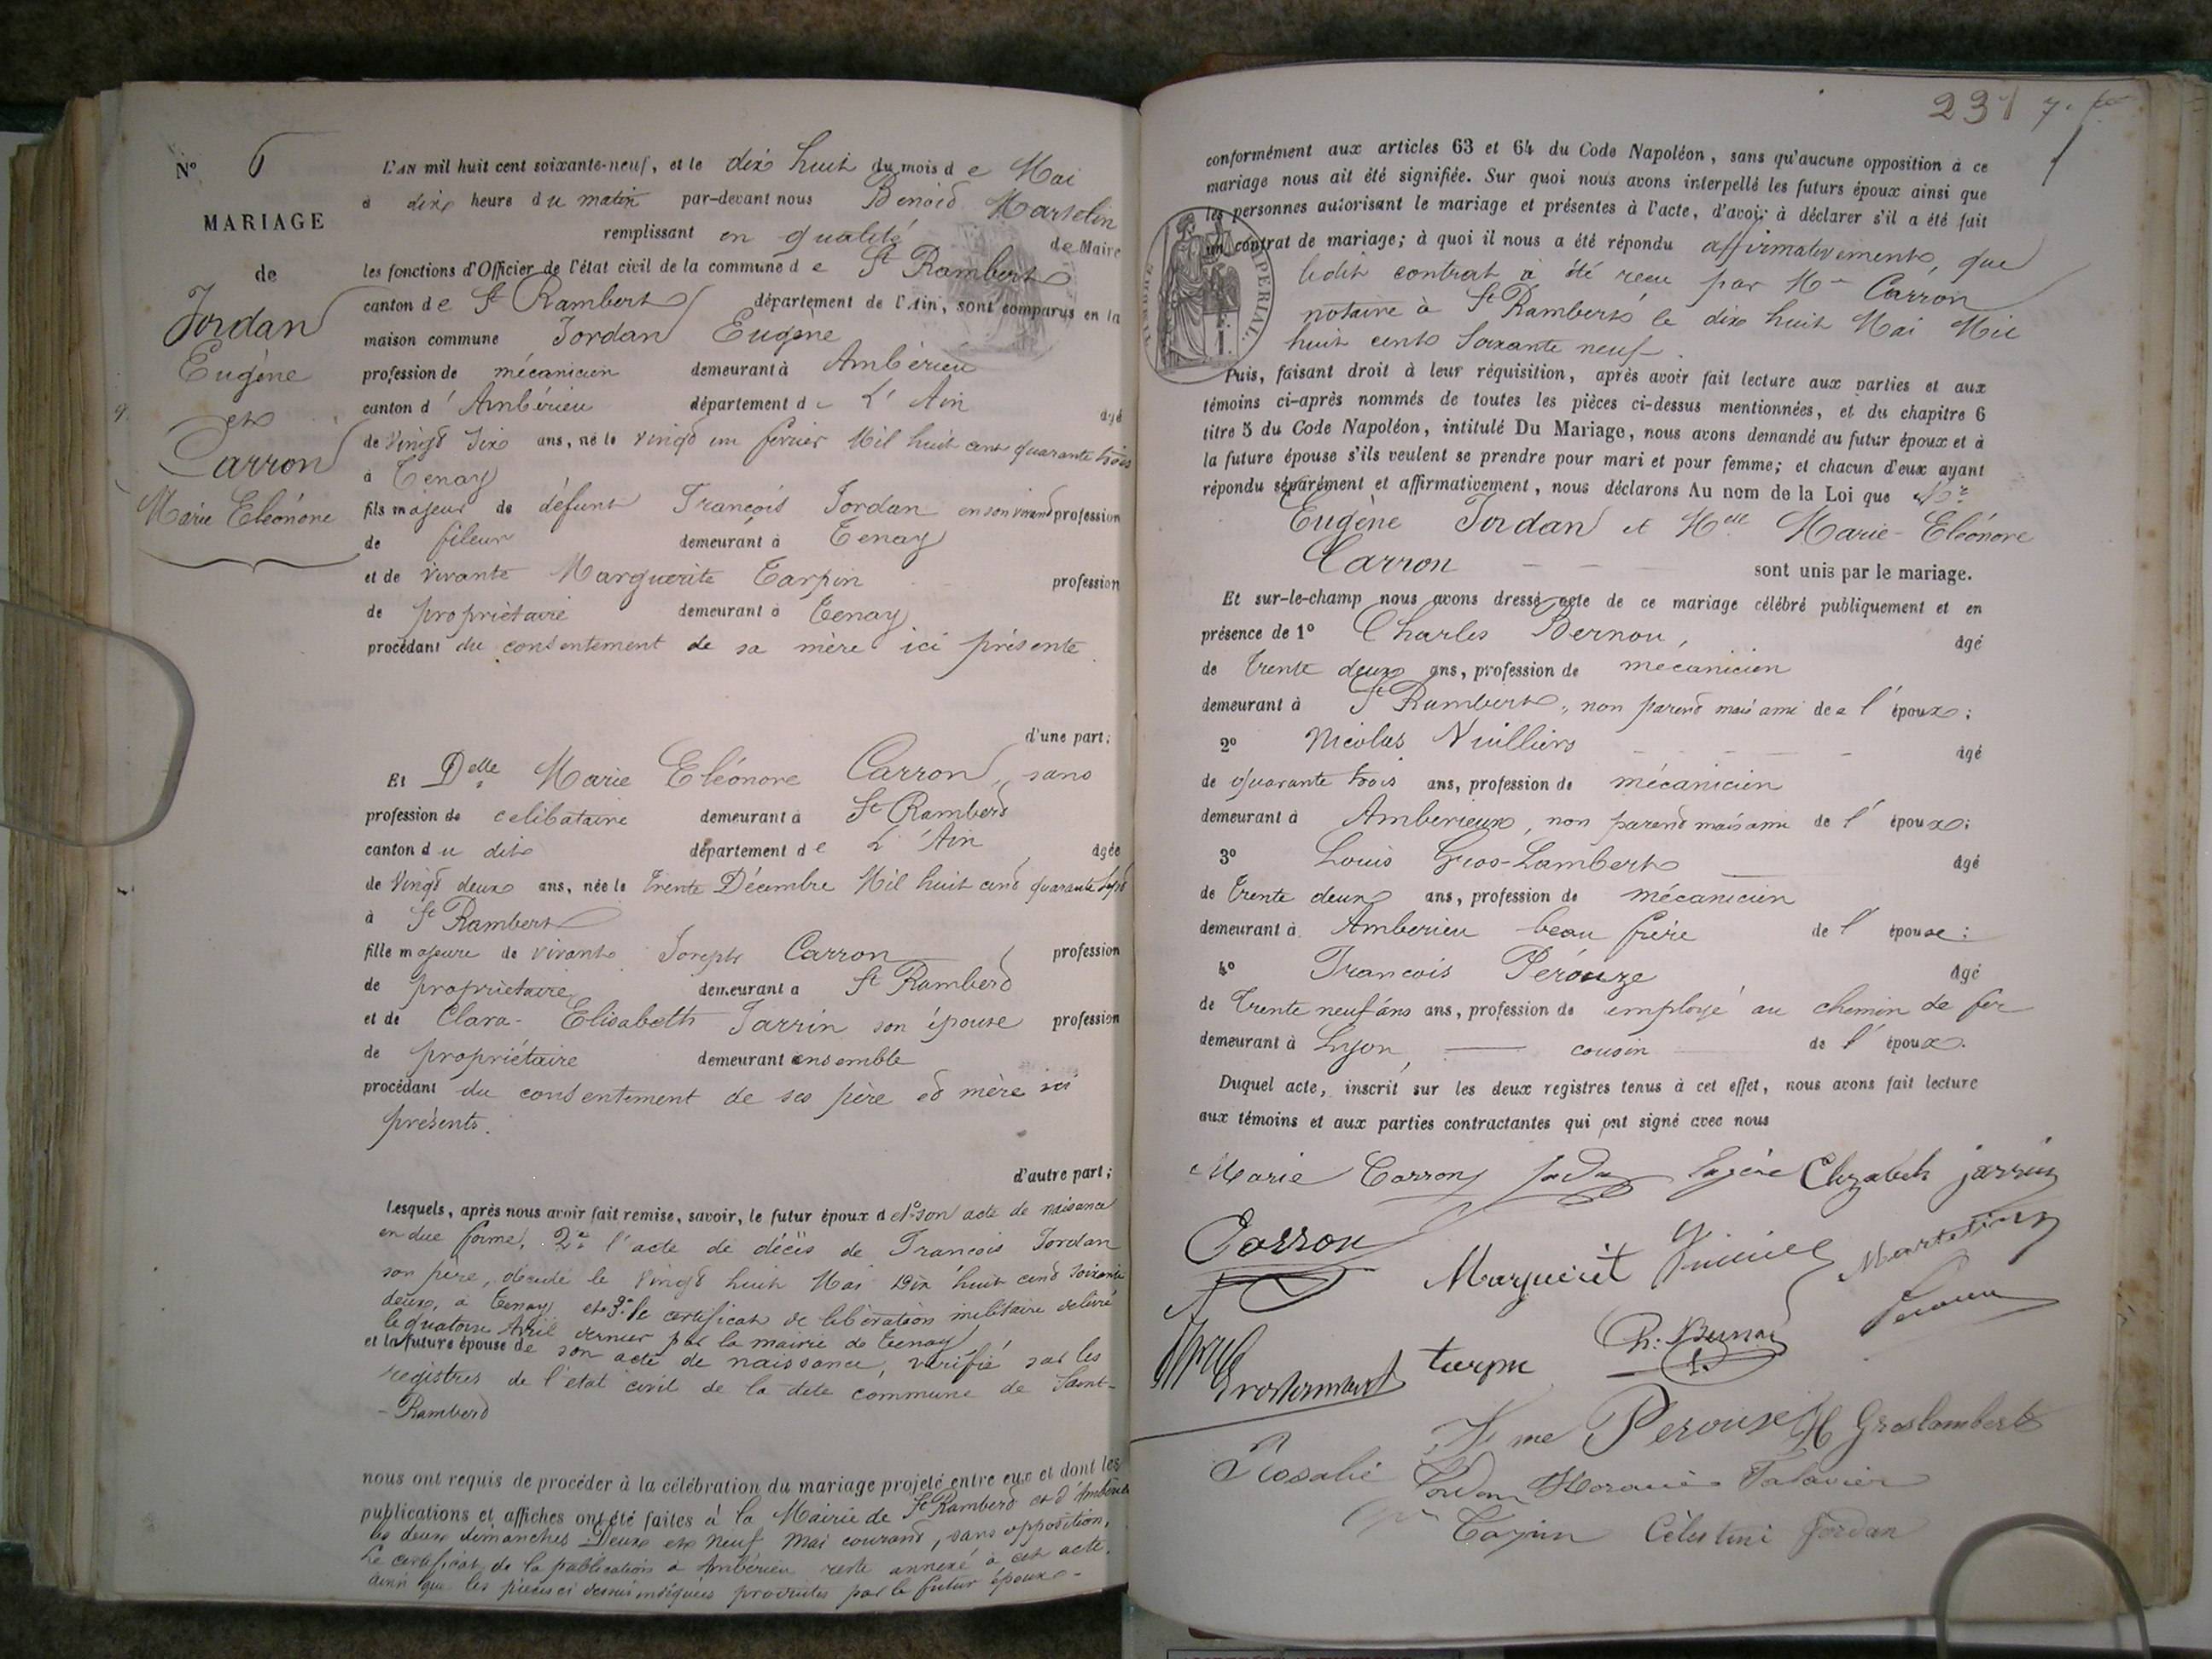 N° 6
MARIAGE
de
Jordan
Eugène
et
Carron
Marie Eléonore
L'AN mil huit cent soixante-neuf, et le dix huit du mois de Mai
à dix heure du matin par-devant nous Benoid Martelin
remplissant en qualité de Maire
les fonctions d'Officier de l'état civil de la commune de St Rambert
canton de St Rambert département de l'Ain, sont comparus en la
maison commune Jordan Eugène
profession de mécanicien demeurant à Ambérieu
canton d'Ambérieu département de L'Ain âgé
de vingt six ans, né le vingt un fevrier Mil huit cent quarante trois
à Tenay
fils majeur de défunt François Jordan en son vivant profession
de fileur demeurant à Tenay
et de vivante Marguerite Tarpin profession
de propriétaire demeurant à Tenay
procédant du consentement de sa mère ici présente
d'une part;
Et Delle Marie Eléonore Carron, sans
profession de celibataire demeurant à St Rambert
canton du dit département de L'Ain âgée
de Vingt deux ans, née le trente Décembre Mil huit cent quarante sept
à St Rambert
fille majeure de vivant Joseph Carron profession
de propriétaire demeurant à St Rambert
et de Clara-Elisabeth Jarrin son épouse profession
de propriétaire demeurant ensemble
procédant du consentement de ses père et mère ici
présents.
d'autre part;
Lesquels, après nous avoir fait remise, savoir, le futur époux de 1° son acte de naissance
en due forme, 2° l'acte de décès de François Jordan
son père, décédé le vingt huit Mai Dix huit cent soixante
deux, à Tenay et 3° le certificat de libération militaire délivré
le quatorze Avril dernier par la mairie de Tenay
et la future épouse de son acte de naissance, vérifié sur les
registres de l'état civil de la dite commune de Saint-
-Rambert
nous ont requis de procéder à la célébration du mariage projeté entre eux et dont les
publications et affiches ont été faites à la Mairie de St Rambert et d'Ambérieu
les deux dimanches Deux et neuf Mai courant, sans opposition,
Le certificat de la publication à Ambérieu reste annexé à cet acte.
ainsi que les pièces ci dessus indiquées produites par le futur époux-
231
conformément aux articles 63 et 64 du Code Napoléon, sans qu'aucune opposition à ce
mariage nous ait été signifiée. Sur quoi nous avons interpellé les futurs époux ainsi que
les personnes autorisant le mariage et présentes à l'acte, d'avoir à déclarer s'il a été fait
un contrat de mariage; à quoi il nous a été répondu affirmativement, que
ledit contrat a été recu par Me Carron
notaire à St Rambert le dix huit Mai Mil
huit cent soixante neuf.
Puis, faisant droit à leur réquisition, après avoir fait lecture aux parties et aux
témoins ci-après nommés de toutes les pièces ci-dessus mentionnées, et du chapitre 6
titre 5 du Code Napoléon, intitulé Du Mariage, nous avons demandé au futur époux et à
la future épouse s'ils veulent se prendre pour mari et pour femme; et chacun d'eux ayant
répondu séparément et affirmativement, nous déclarons Au nom de la Loi que Mr
Eugène Jordan et Melle Marie-Eléonore
Carron sont unis par le mariage.
Et sur-le-champ nous avons dressé acte de ce mariage célébré publiquement et en
présence de 1° Charles Bernou, âgé
de trente deux ans, profession de mécanicien
demeurant à St Rambert, non parent mais ami de l'époux;
2° Nicolas Vuilliers âgé
de quarante trois ans, profession de mécanicien
demeurant à Amberieux, non parent mais ami de l'époux;
3° Louis Gros-Lambert âgé
de trente deux ans, profession de mécanicien
demeurant à Amberieu beau frère de l'épouse;
4° Francois Pérouze âgé
de trente neuf ans ans, profession de employé au chemin de fer
demeurant à Lyon, cousin de l'époux.
Duquel acte, inscrit sur les deux registres tenus à cet effet, nous avons fait lecture
aux témoins et aux parties contractantes qui ont signé avec nous
Marie Carron Eugène Elizabeth jarrin
Carron Marguerit Martelin
Groslambert
Perouse H Groslambert
Rosalie Jordan Talavier
Célestine Jordan
TIMBRE IMPERIAL